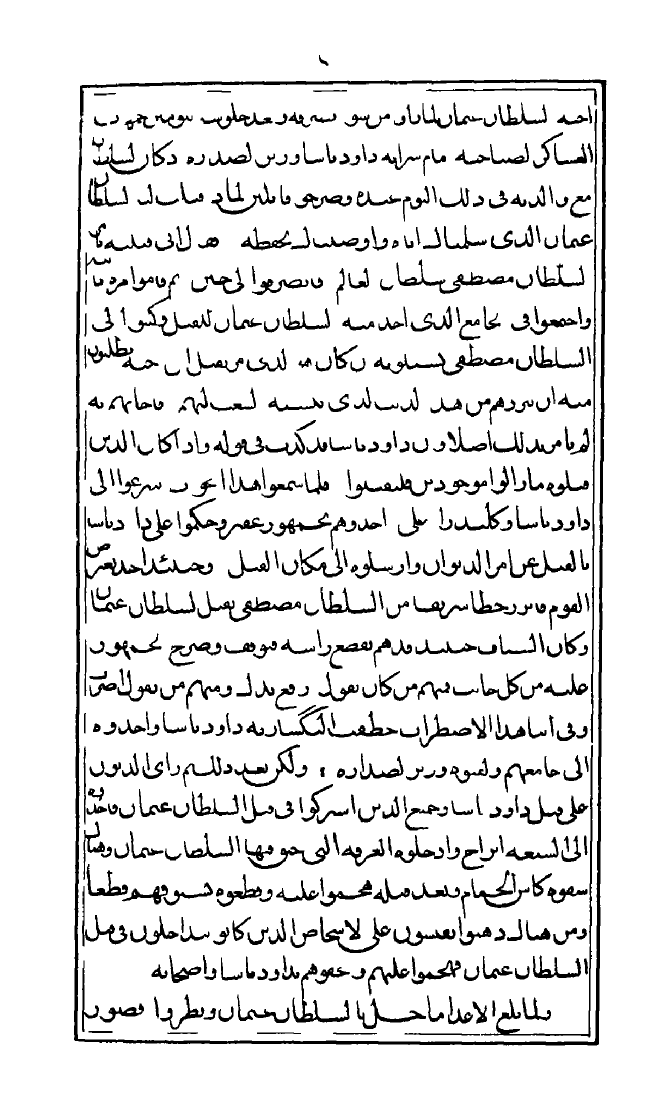 السلطان عثمان وبعد جلوسه
العساكر لصاحبه مقام سرايه داود باشا وزير الصداره وكان السلطان
مع والدته في ذلك اليوم عنده وصرخوا قايلين لماذا مات السلطان
عثمان الذي سلمناك اياه واوصيناك بحفظه هل لاني
السلطان مصطفى سلطان العالم فانصرفوا الى حين ثم قاموا مره
واجتمعوا في الجامع الذي اخذ منه السلطان عثمان للقتل وكتبوا الى
السلطان مصطفى يسالونه ان كان هو الذي امر بقتل اخيه يطلبون
منه ان يبررهم من هذا الذنب الذي ينسبه الشعب اليهم فاجابهم بانه
لم يامر بذلك اصلا وان داود باشا قد كذب في قوله واذا كان الذين
قتلوه ما زالوا موجودين فليقتلوا فلما سمعوا هذا الجواب سرعوا الى
داود باشا على احدوهم بجمهور عفير وحكموا على داود باشا
بالقتل عن امر الديوان وارسلوه الى مكان القتل وحينئذ احد بعض
القوم فابرز خطا شريفا من السلطان مصطفى بقتل السلطان عثمان
وكان السياف حينئذ قد هم بقطع راسه فتوقف وصرخ الجمهور
عليه من كل جانب فمنهم من كان يقول ارفع يدك ومنهم من يقول اضرب
وفي اثنا هذا الاضطراب خطفت الينكشاريه داود باشا واخذوه
الى جامعهم ولقبوه وزير الصداره ؛ ولكن بعد ذلك راى الديوان
على قتل داود باشا وجميع الذين اشتركوا في قتل السلطان عثمان فاخذوه
الى السبعه ابراج وادخلوه الغرفه التي خنق فيها السلطان عثمان وهناك
سقوه كاس الحمام وبعد قتله هجموا عليه وقطعوه بسيوفهم قطعا
ومن هناك ذهبوا يفتشون على الاشخاص الذين كانوا متداخلون في قتل
السلطان عثمان فهجموا عليهم والحقوهم بداود باشا واصحابه
ولما بلغ الاعدا ما حل بالسلطان عثمان ونظروا قصور